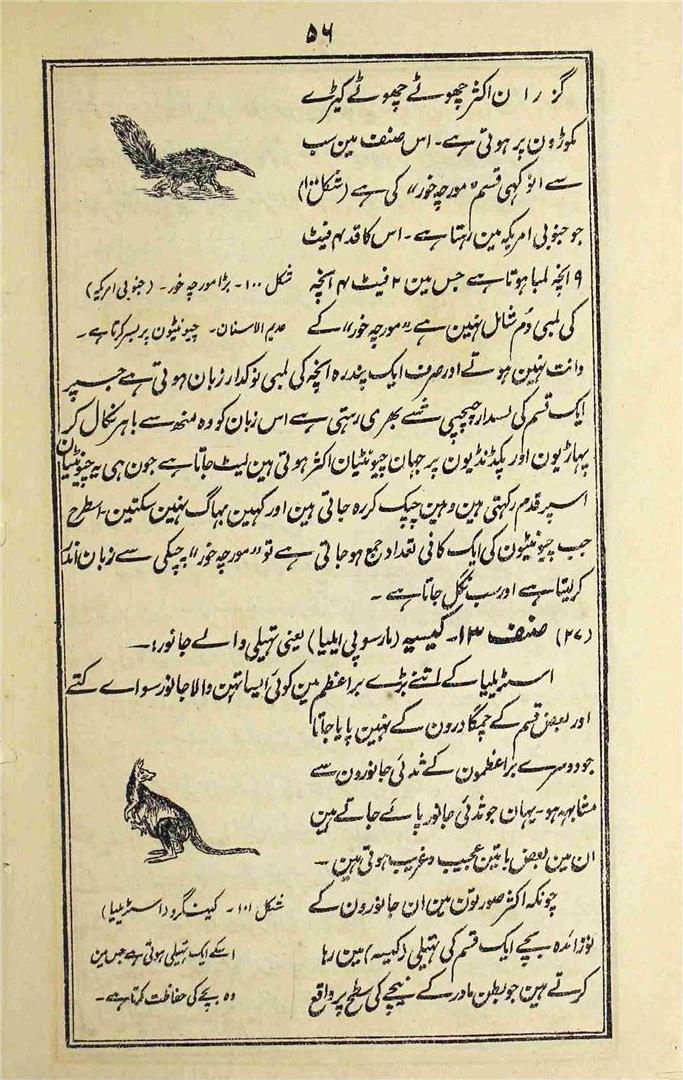 ۵۶
گزران اکثر چھوٹے چھوٹے کیڑے
مکوڑون پر ہوتی ہے۔ اس صنف مین سب
سے انوکہی قسم "مورچہ خور" کی ہے (شکل ۱۰۰)
جو جنوبی امریکہ مین رہتا ہے۔ اس کا قد ۴ فیٹ
۹ انچہ لمبا ہوتا ہے جس مین ۲ فیٹ ۴ انچہ
کی لمبی دُم شامل نہین ہے "مورچہ خور" کے
شکل ۱۰۰۔ بڑا مورچہ خور۔ (جنوبی امریکہ)
عدیم الاسنان۔ چیونٹیون پر بسر کرتا ہے۔
دانت نہین ہوتے اور صرف ایک پندرہ انچہ کی لمبی نوکدار زبان ہوتی ہے جسپر
ایک قسم کی لسدار چپچپی شے بھری رہتی ہے اس زبان کو وہ منھ سے باہر نکال کر
پہاڑیون اور پگڈنڈیون پر جہان چیونٹیان اکثر ہوتی ہین لیٹ جاتا ہے جون ہی یہ چیونٹیان
اسپر قدم رکہتی ہین وہین چپک کر رہ جاتی ہین اور کہین بہاگ نہین سکتین۔ اسطرح
جب چیونٹیون کی ایک کافی تعداد جمع ہو جاتی ہے تو "مورچہ خور" چپکی سے زبان اندر
کر لیتا ہے اور سب نگل جاتا ہے۔
(۲۷) صنف ۱۳۔ کیسیہ (مارسوپی ایلیا) یعنی تہیلی والے جانور:۔
اسٹریلیا کے اتنے بڑے براعظم مین کوئی ایسا تہن والا جانور سواے کتے
اور بعض قسم کے چمگادرون کے نہین پایا جاتا
جو دوسرے براعظمون کے ثدئی جانورون سے
مشابہہ ہو۔ یہان جو ثدئی جانور پائے جاتے ہین
ان مین بعض باتین عجیب و غریب ہوتی ہین۔
چونکہ اکثر صورتون مین ان جانورون کے
نوزائدہ بچے ایک قسم کی تہیلی (کیسہ) مین رہا
کرتے ہین جو بطن مادر کے نیچے کی سطح پر واقع
شکل ۱۰۱۔ کینگرو (اسٹریلیا)
اسکے ایک تہیلی ہوتی ہے جس مین
وہ بچے کی حفاظت کرتا ہے۔